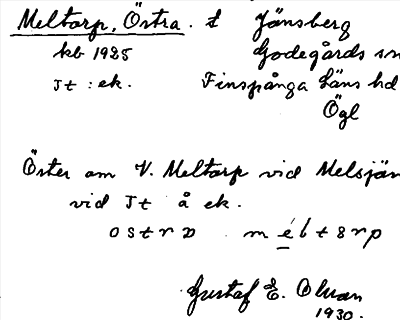 Meltorp, Östra. t Jänsberg
kb 1925 Godegårds sn
Jt : ek. Finspånga Läns hd
Ögl
Öster om V. Meltorp vid Melsjön
vid Jt å ek.
Gustaf E. Olson
1930.